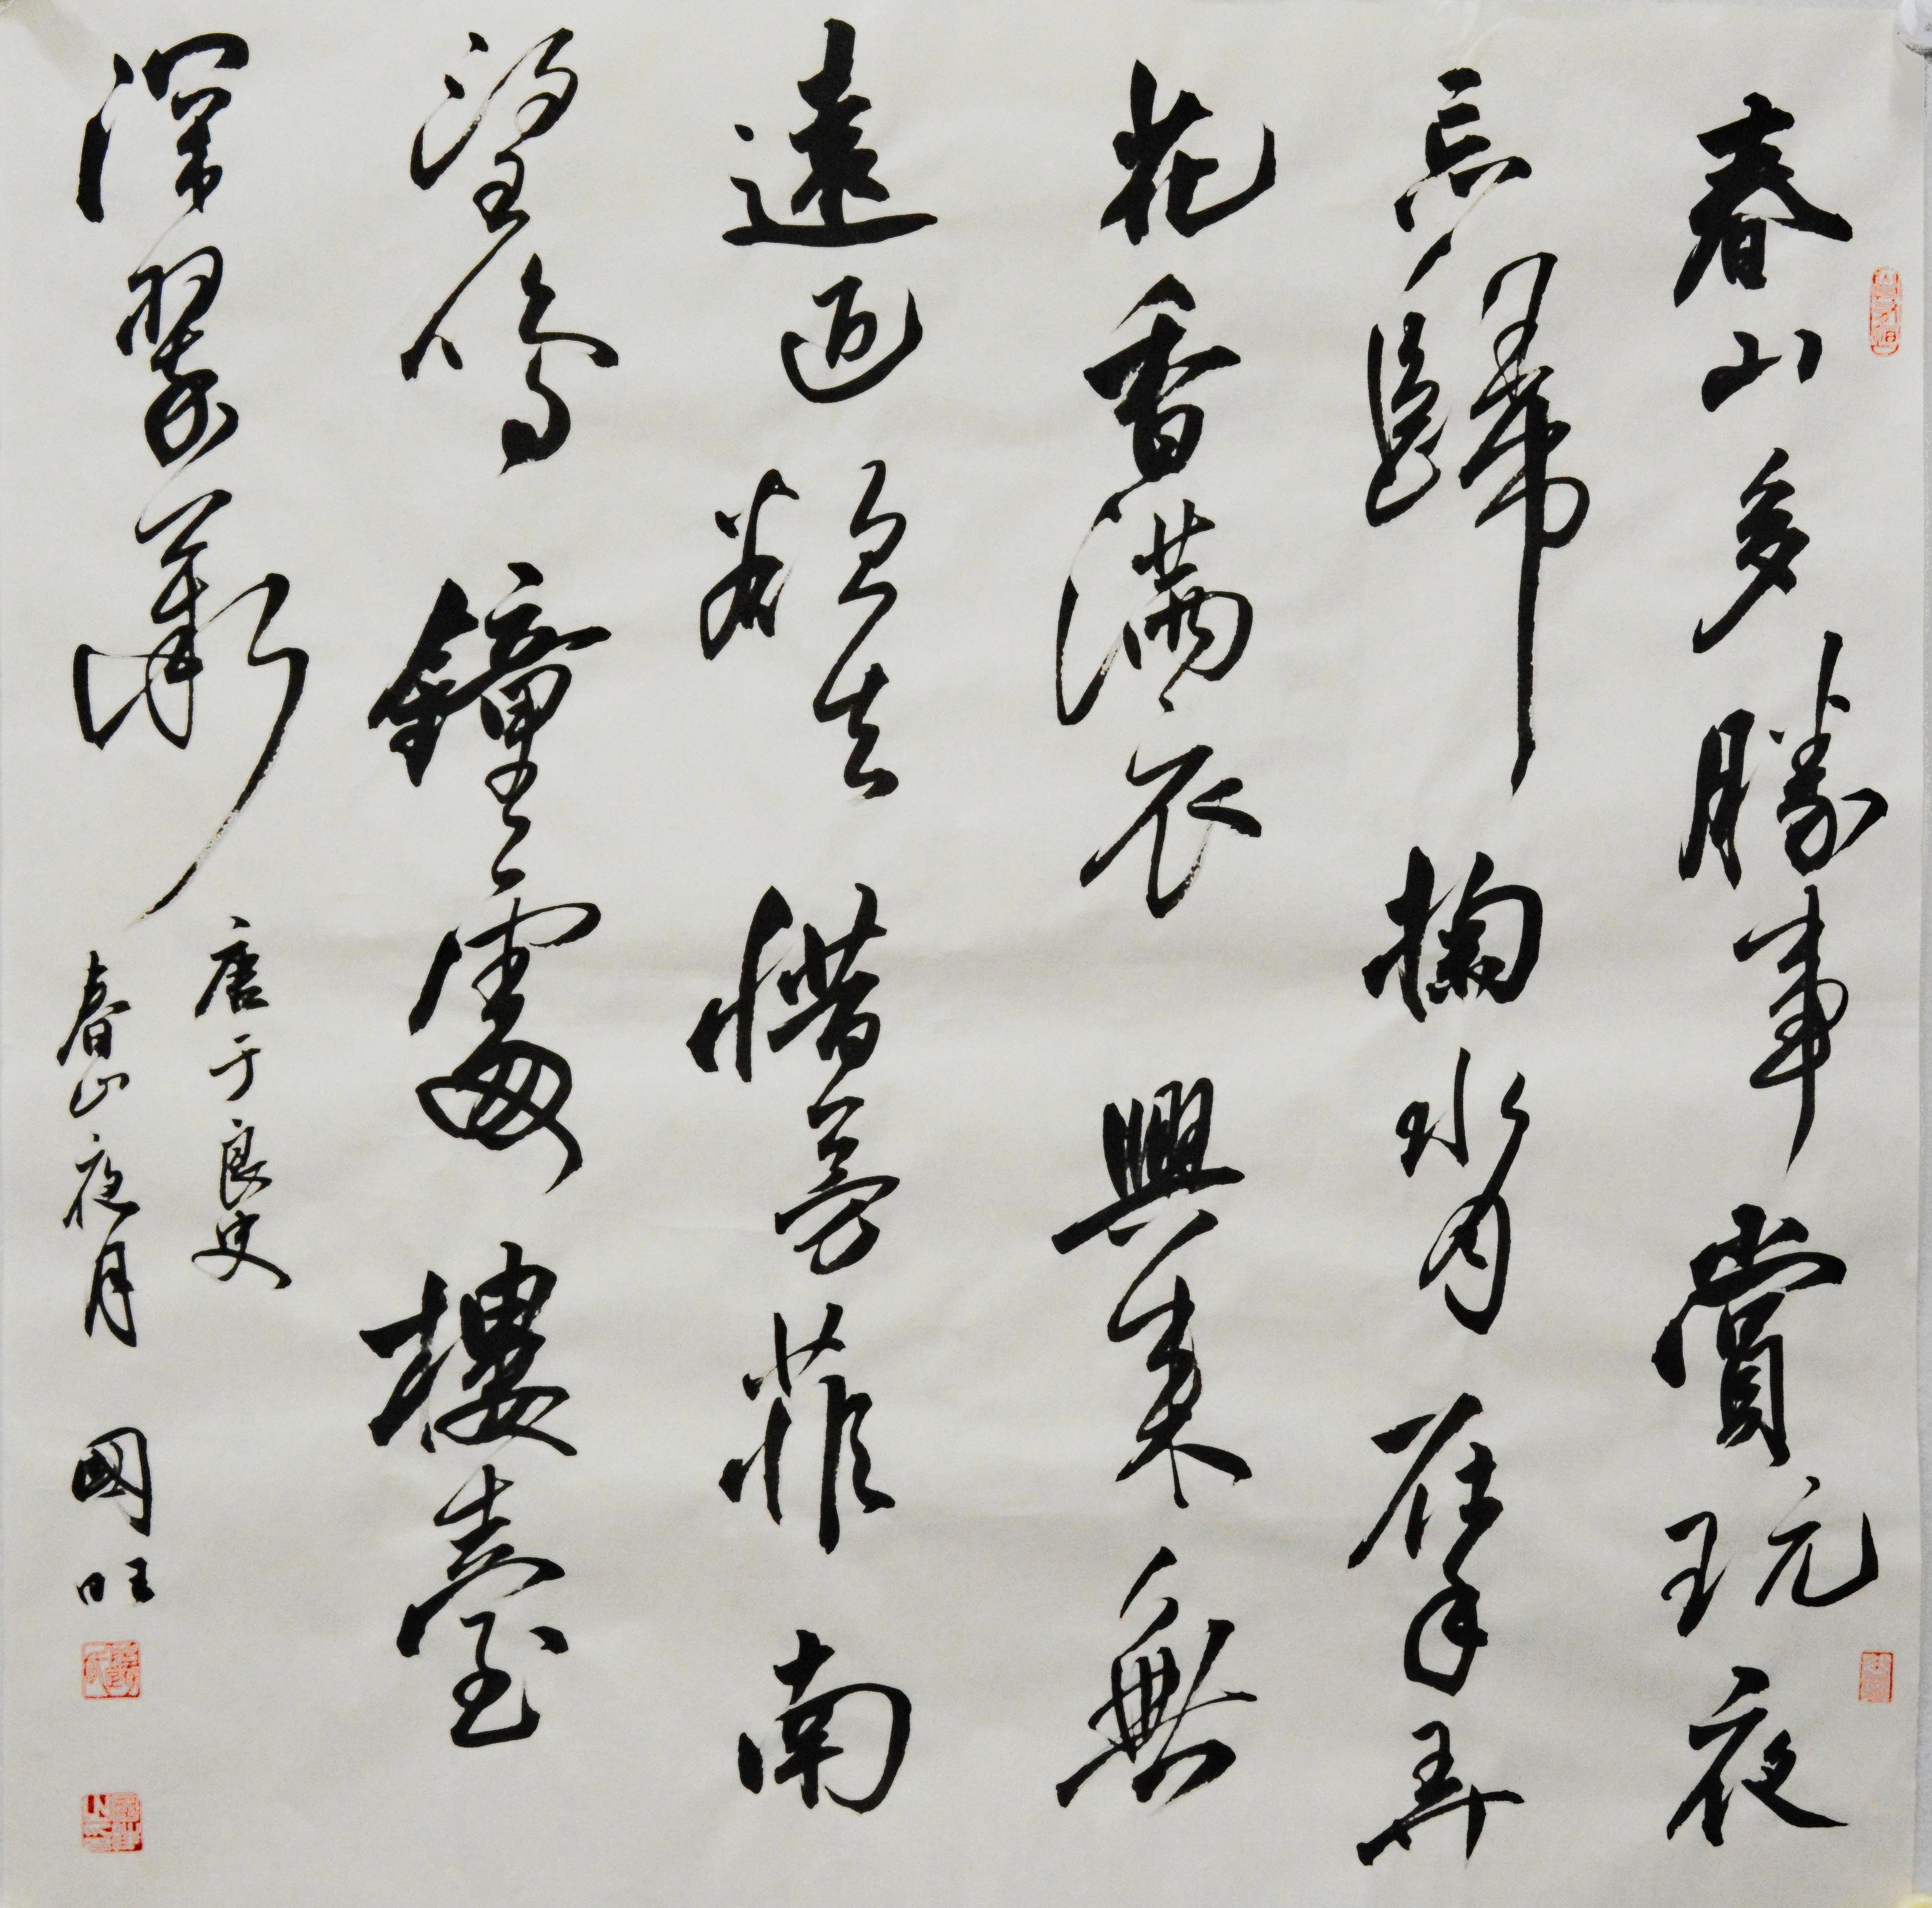 春山多勝事賞玩夜
忘歸掬水月在手弄
花香滿衣興來無
遠近欲去惜芳菲南
望鳴鐘處樓臺
深翠微
唐于良史
春山夜月
國旺